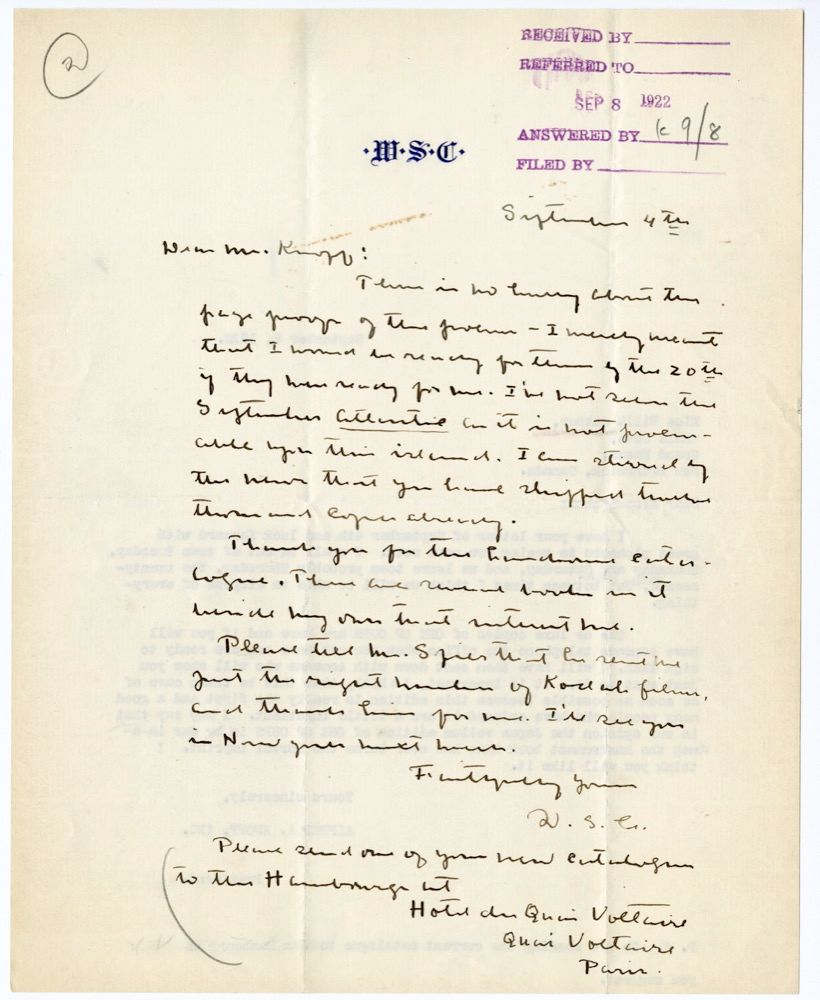 2
RECEIVED BY
REFERRED TO
SEP 8 1922
ANSWERED BY K 9/8
FILED BY
·W·S·C·
September 4th
Dear Mr. Knopf:
There is no hurry about the
page proofs of the poems - I merely meant
that I would be ready for them by the 20th
if they were ready for me. I've not seen the
September Atlantic as it is not procur-
able upon this island. I am stirred by
the news that you have shipped twelve
thousand copies already.
Thank you for the handsome cata-
logue. There are several books in it
beside my own that interest me.
Please tell Mr. Spier that he sent me
just the right number of Kodak films,
and thank him for me. I'll see you
in New York next week.
Faithfully yours
W. S. C.
Please send one of your new catalogues
to the Hambourgs at
Hotel du Quai Voltaire
Quai Voltaire
Paris.